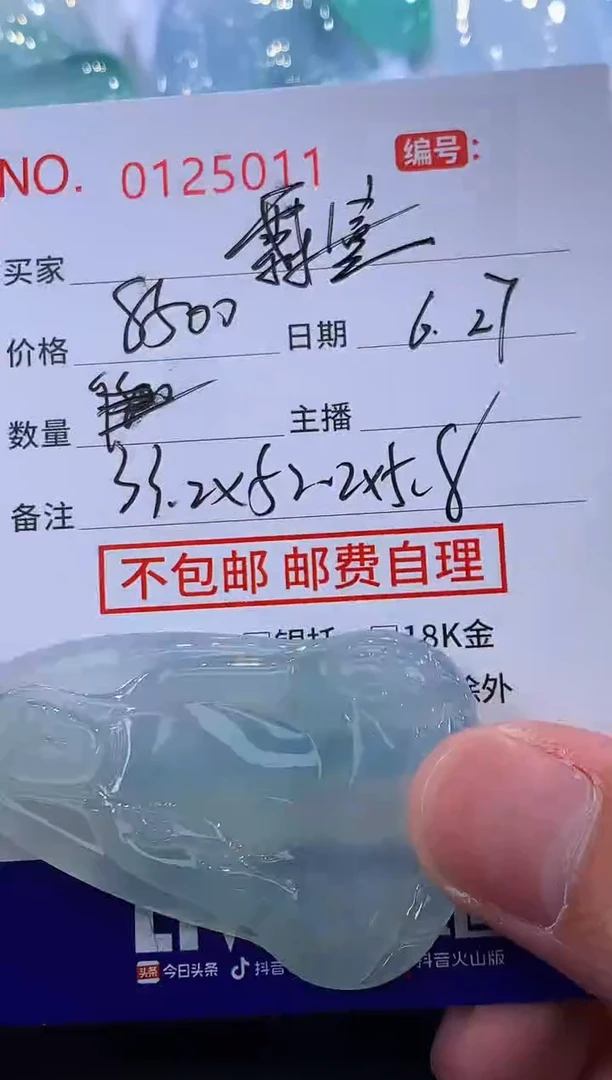 NO. 0125011 编号：
买家
价格 8500 日期 6.27
数量 主播
备注 33.2x52.2x5.8
不包邮 邮费自理
18K金
除外
头条 今日头条 抖音 抖音火山版